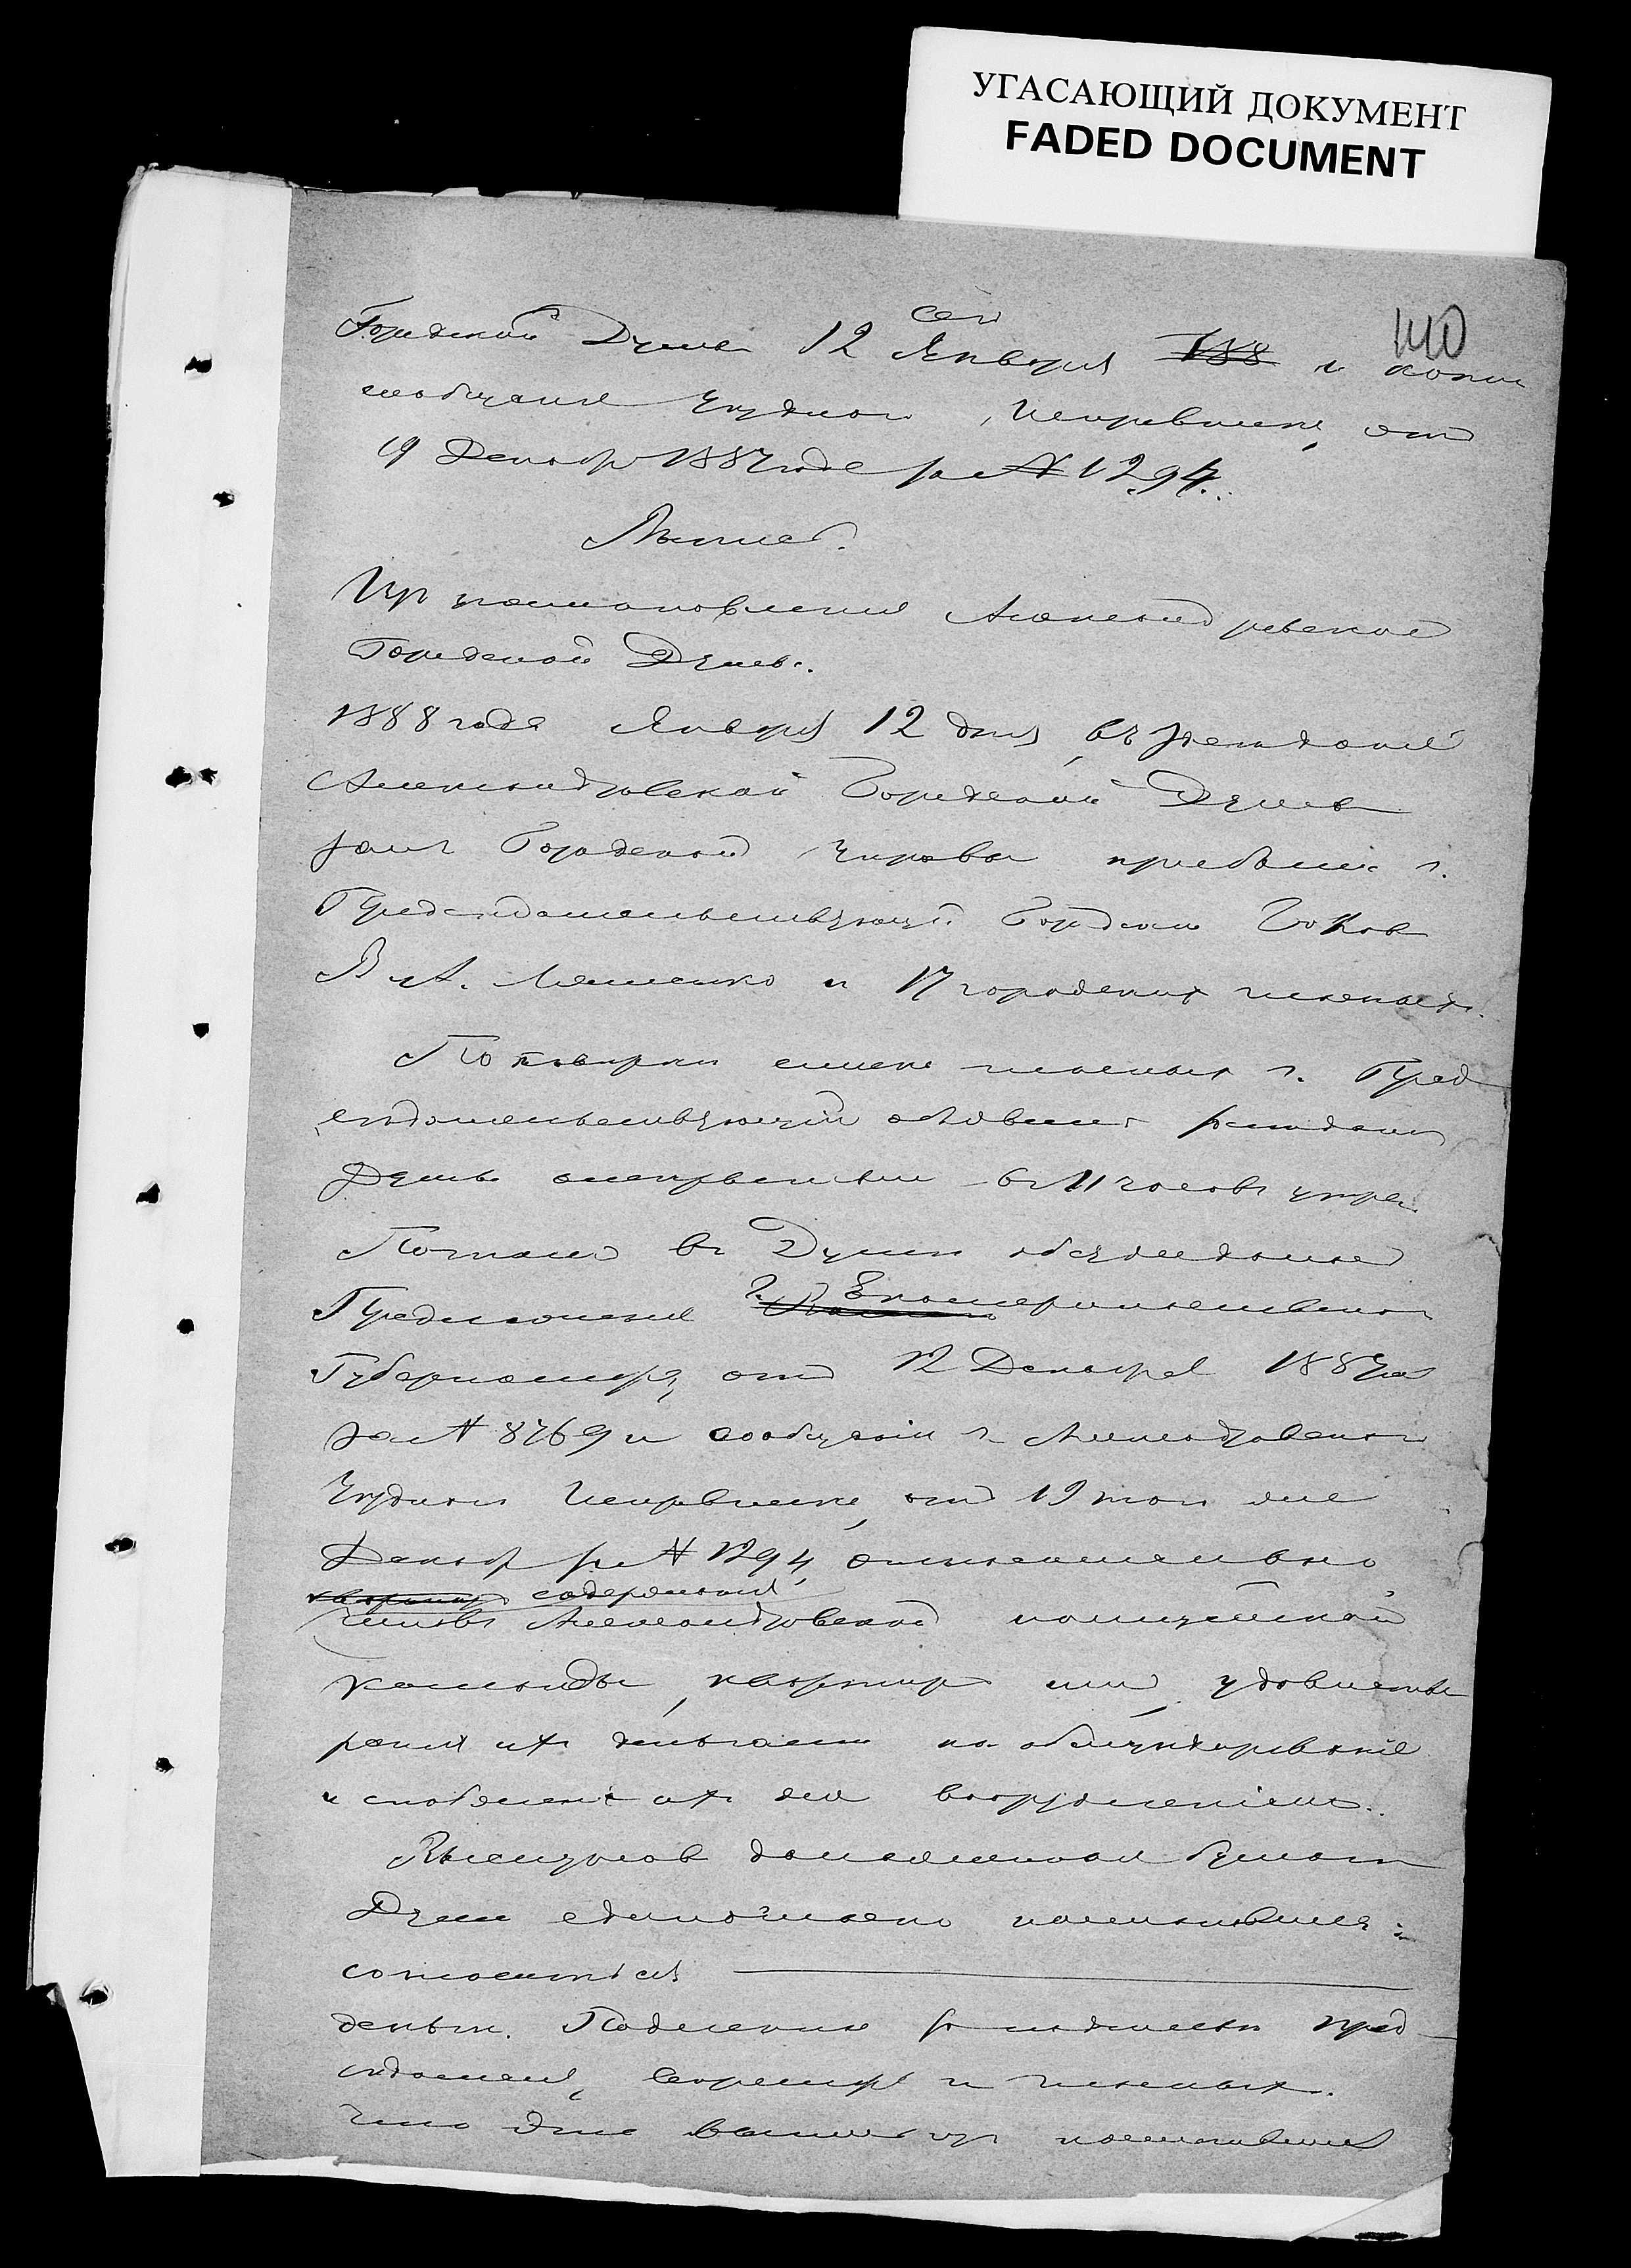 УГАСАЮЩИЙ ДОКУМЕНТ
FADED DOCUMENT
140
сего
Городской Думы 12 Января 188 и копии
сообщения Уезднаго Исправника, отъ
19 Декабря 1887 года за № 1294.
Изъ постановления Александровской
Городской Думы.
1888 года Января 12 дня, въ заседание
Александровской Городской Думы
залъ Городской Управы прибыли г.
Председательствующий Городской Голова
В. А. Лященко и 17 городскихъ гласныхъ.
По поверке списка гласныхъ г. Пред
седательствующий объявилъ заседание
Думы открытымъ въ 11 часовъ утра.
въ Думе обсуждение
Предложения г. Екатеринославскаго
Губернатора, отъ 12 Декабря 1887 года
за № 8769 и сообщения г. Александровскаго
Уезднаго Исправника, отъ 19 того же
Декабря за № 1294, относительно
квартиръ содержания
чиновъ Александровской полицейской
команды, квартиръ или удовлетво
рения ихъ деньгами на обмундирование
и снабжения ихъ же вооружениемъ.
Выслушавъ доложенныя бумаги
Дума единогласно постановила:
согласиться
деньги. Подлинное за подписью пред
седателя, секретаря и гласныхъ.
Что выписка изъ постановления